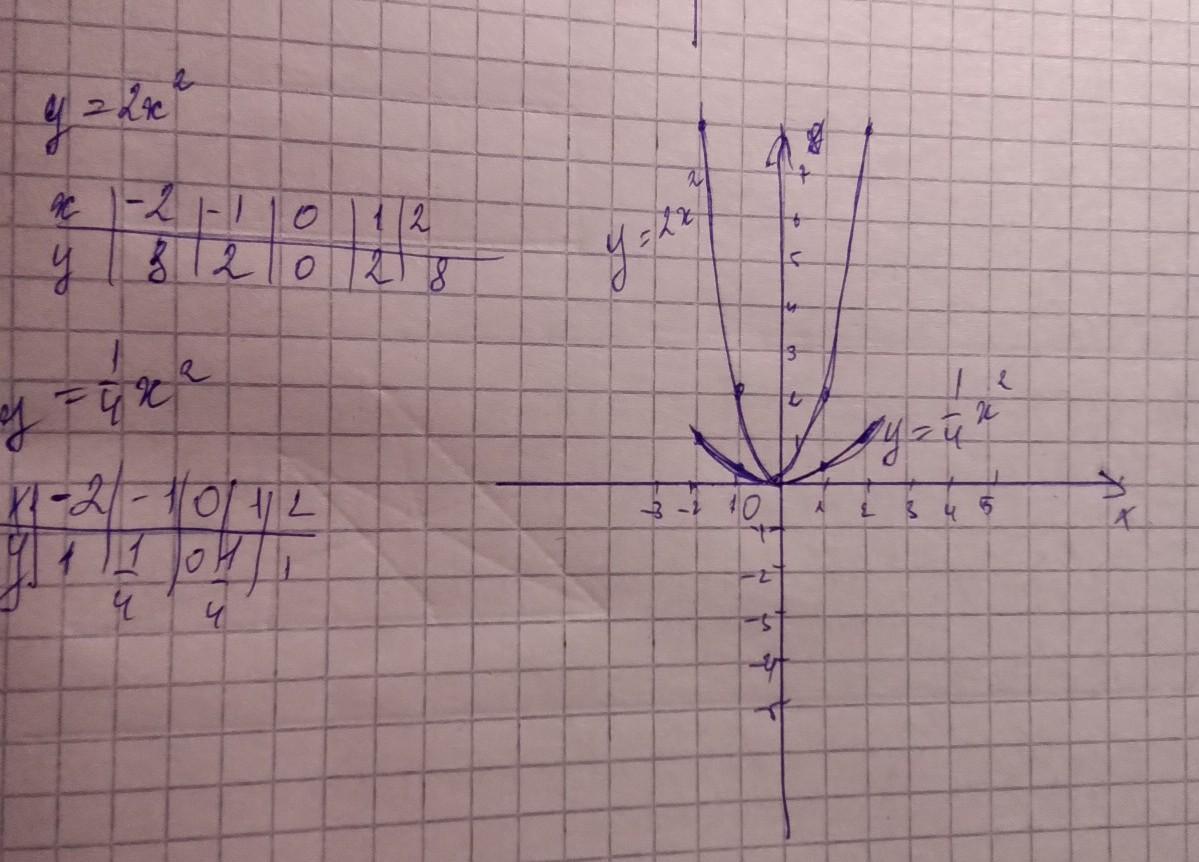 y = 2x²
x | -2 | -1 | 0 | 1 | 2
y | 8 | 2 | 0 | 2 | 8
y = 1/4 x²
x | -2 | -1 | 0 | 1 | 2
y | 1 | 1/4 | 0 | 1/4 | 1
8
7
y = 2x²
6
5
4
3
2
y = 1/4 x²
1
-3 -2 1 0 1 2 3 4 5 x
-1
-2
-3
-4